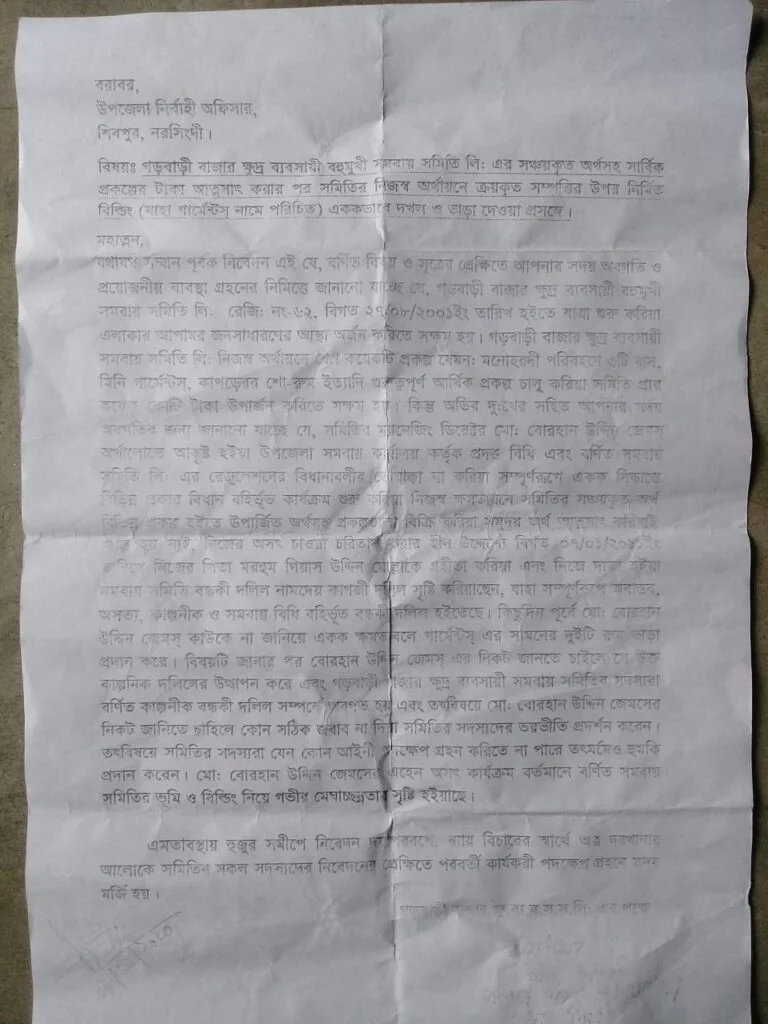 বরাবর,
উপজেলা নির্বাহী অফিসার,
শিবপুর, নরসিংদী।
বিষয়ঃ গড়বাড়ী বাজার ক্ষুদ্র ব্যবসায়ী বহুমুখী সমবায় সমিতি লি: এর সঞ্চয়কৃত অর্থসহ সার্বিক
প্রকল্পের টাকা আত্মসাৎ করার পর সমিতির নিজস্ব অর্থায়নে ক্রয়কৃত সম্পত্তির উপর নির্মিত
বিল্ডিং (যাহা গার্মেন্টস্ নামে পরিচিত) এককভাবে দখল ও ভাড়া দেওয়া প্রসঙ্গে।
মহাত্মন,
যথাযথ সম্মান পূর্বক নিবেদন এই যে, বর্ণিত বিষয় ও সূত্রের প্রেক্ষিতে আপনার সদয় অবগতি ও
প্রয়োজনীয় ব্যবস্থা গ্রহনের নিমিত্তে জানানো যাচ্ছে যে, গড়বাড়ী বাজার ক্ষুদ্র ব্যবসায়ী বহুমুখী
সমবায় সমিতি লি: রেজি: নং-৬২, বিগত ২৭/০৮/২০০১ইং তারিখ হইতে যাত্রা শুরু করিয়া
এলাকার আপামর জনসাধারণের আস্থা অর্জন করিতে সক্ষম হয়। গড়বাড়ী বাজার ক্ষুদ্র ব্যবসায়ী
সমবায় সমিতি লি: নিজস্ব অর্থায়নে বেশ কয়েকটি প্রকল্প যেমন: মনোহরদী পরিবহণে ৩টি বাস,
মিনি গার্মেন্টস্, কাপড়ের শো-রুম ইত্যাদি গুরুত্বপূর্ণ আর্থিক প্রকল্প চালু করিয়া সমিতি প্রায়
কয়েক কোটি টাকা উপার্জন করিতে সক্ষম হয়। কিন্তু অতিব দু:খের সহিত আপনার সদয়
অবগতির জন্য জানানো যাচ্ছে যে, সমিতির ম্যানেজিং ডিরেক্টর মো: বোরহান উদ্দিন জেমস্
অর্থলোভে আকৃষ্ট হইয়া উপজেলা সমবায় কার্যালয় কর্তৃক প্রদত্ত বিধি এবং বর্ণিত সমবায়
সমিতি লি: এর রেজুলেশনের বিধানাবলীর তোয়াক্কা না করিয়া সম্পূর্ণরূপে একক সিদ্ধান্তে
বিভিন্ন প্রকার বিধান বহির্ভূত কার্যক্রম শুরু করিয়া নিজস্ব ক্ষমতায়নে সমিতির সঞ্চয়কৃত অর্থ
বিভিন্ন প্রকল্প হইতে উপার্জিত অর্থসহ প্রকল্পগুলো বিক্রি করিয়া সমুদয় অর্থ আত্মসাৎ করিয়াই
ক্ষান্ত হয় নাই, নিজের অসৎ চাওয়া চরিতার্থ করার হীন উদ্দেশ্যে বিগত ০৭/০১/২০১১ইং
তারিখে নিজের পিতা মরহুম গিয়াস উদ্দিন মোল্লাকে গ্রহীতা করিয়া এবং নিজে দাতা হইয়া
সমবায় সমিতি বন্ধকী দলিল নামদেয় কাগজী দলিল সৃষ্টি করিয়াছেন, যাহা সম্পূর্ণরূপে অবান্তব,
অসত্য, কাল্পনীক ও সমবায় বিধি বহির্ভূত বন্ধকী দলিল হইতেছে। কিছুদিন পূর্বে মো: বোরহান
উদ্দিন জেমস্ কাউকে না জানিয়ে একক ক্ষমতাবলে গার্মেন্টস্ এর সামনের দুইটি রুম ভাড়া
প্রদান করে। বিষয়টি জানার পর বোরহান উদ্দিন জেমস্ এর নিকট জানতে চাইলে সে উক্ত
কাল্পনিক দলিলের উত্থাপন করে এবং গড়বাড়ী বাজার ক্ষুদ্র ব্যবসায়ী সমবায় সমিতির সদস্যরা
বর্ণিত কাল্পনীক বন্ধকী দলিল সম্পর্কে অবগত হয় এবং তৎবিষয়ে মো: বোরহান উদ্দিন জেমসের
নিকট জানিতে চাহিলে কোন সঠিক জবাব না দিয়া সমিতির সদস্যদের ভয়ভীতি প্রদর্শন করেন।
তৎবিষয়ে সমিতির সদস্যরা যেন কোন আইনী পদক্ষেপ গ্রহন করিতে না পারে তৎমর্মেও হুমকি
প্রদান করেন। মো: বোরহান উদ্দিন জেমসের এহেন অসৎ কার্যক্রম বর্তমানে বর্ণিত সমবায়
সমিতির ভূমি ও বিল্ডিং নিয়ে গভীর মেঘাচ্ছন্নতার সৃষ্টি হইয়াছে।
এমতাবস্থায় হুজুর সমীপে নিবেদন দয়া পরবশে, ন্যায় বিচারের স্বার্থে অত্র দরখাস্তের
আলোকে সমিতির সকল সদস্যদের নিবেদনের প্রেক্ষিতে পরবর্তী কার্যকরী পদক্ষেপ গ্রহনে সদয়
মর্জি হয়।
গড়বাড়ী বাজার ক্ষু.ব্য.ব.স.স.লি: এর পক্ষে